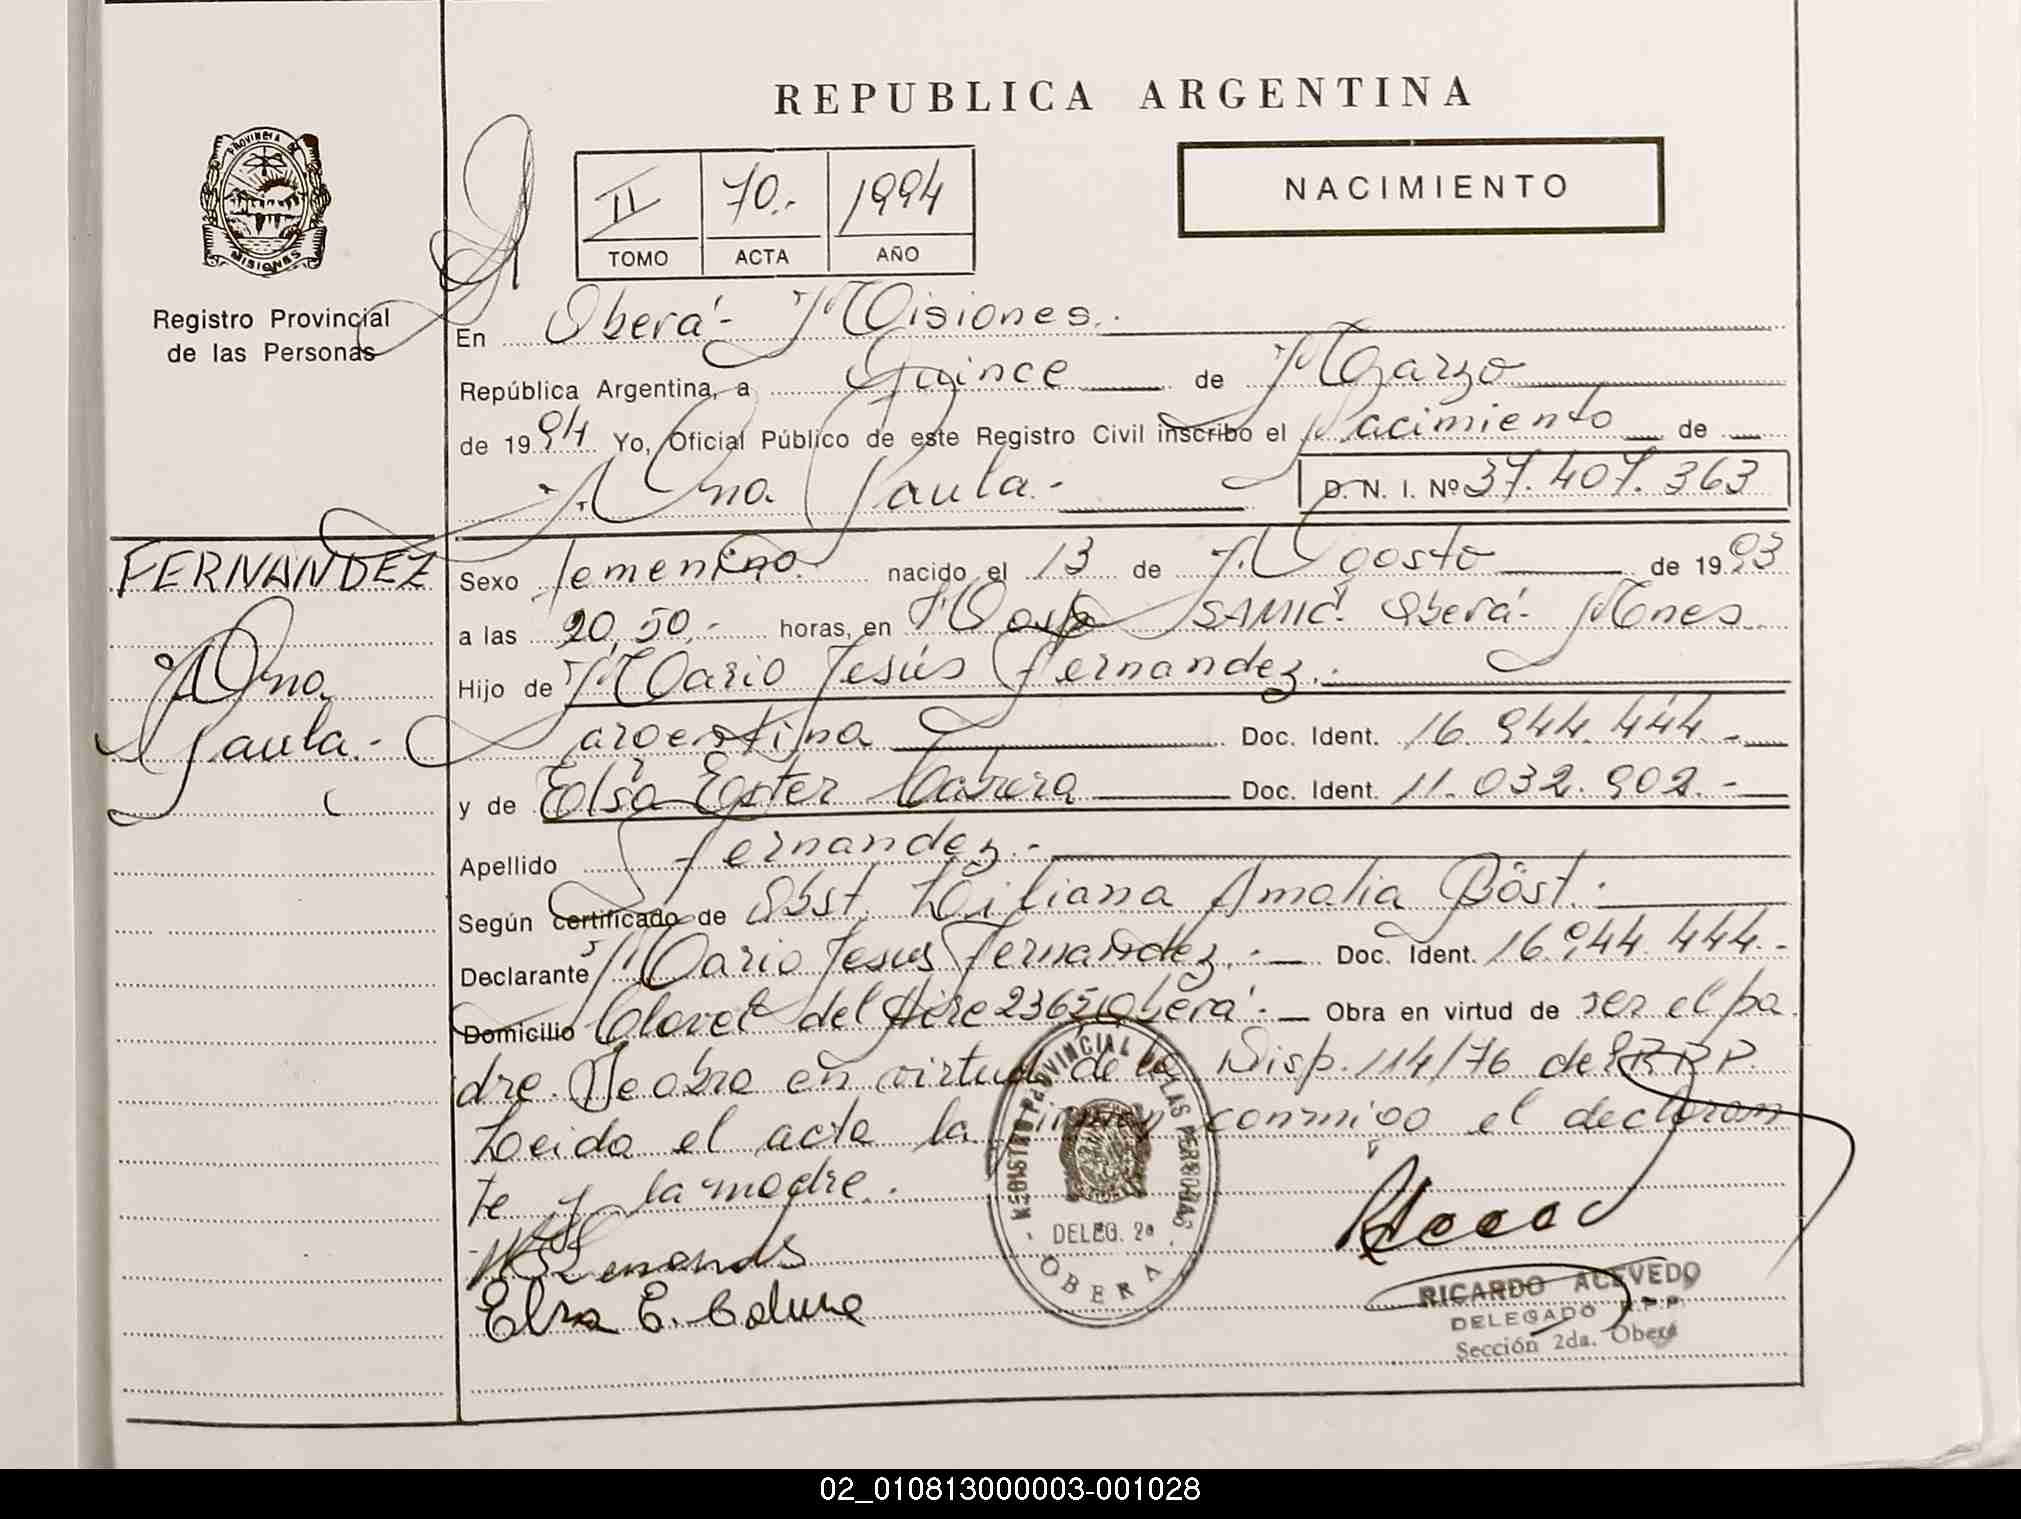 REPUBLICA ARGENTINA
PROVINCIA DE
MISIONES
Registro Provincial
de las Personas
II 70.- 1994
TOMO ACTA AÑO
NACIMIENTO
En Oberá- Misiones.-
República Argentina, a Quince de Marzo
de 1994 Yo, Oficial Público de este Registro Civil inscribo el Nacimiento de
Ana Paula.- D. N. I. Nº 37.407.363
FERNANDEZ
Ana
Paula.-
Sexo femenino nacido el 13 de Agosto de 1993
a las 20,50.- horas, en Hosp SAMIC. Oberá- Mnes
Hijo de Mario Jesús Fernandez.-
argentina Doc. Ident. 16.944.444.-
y de Elsa Ester Cabrera Doc. Ident. 11.032.902.-
Apellido Fernandez.-
Según certificado de Obst. Liliana Amalia Böst.
Declarante Mario Jesus Fernandez.- Doc. Ident. 16.944.444.-
Domicilio Clavel del Aire 2365 Oberá.- Obra en virtud de ser el pa
dre. Se obra en virtud de la Disp. 114/76 del R.P.P.
Leida el acta la firman conmigo el declaran
te y la madre.
Elsa E. Cabrera
REGISTRO PROVINCIAL DE LAS PERSONAS
DELEG. 2ª
OBERA
RICARDO ACEVEDO
DELEGADO R.P.P.
Sección 2da. Oberá
02_010813000003-001028